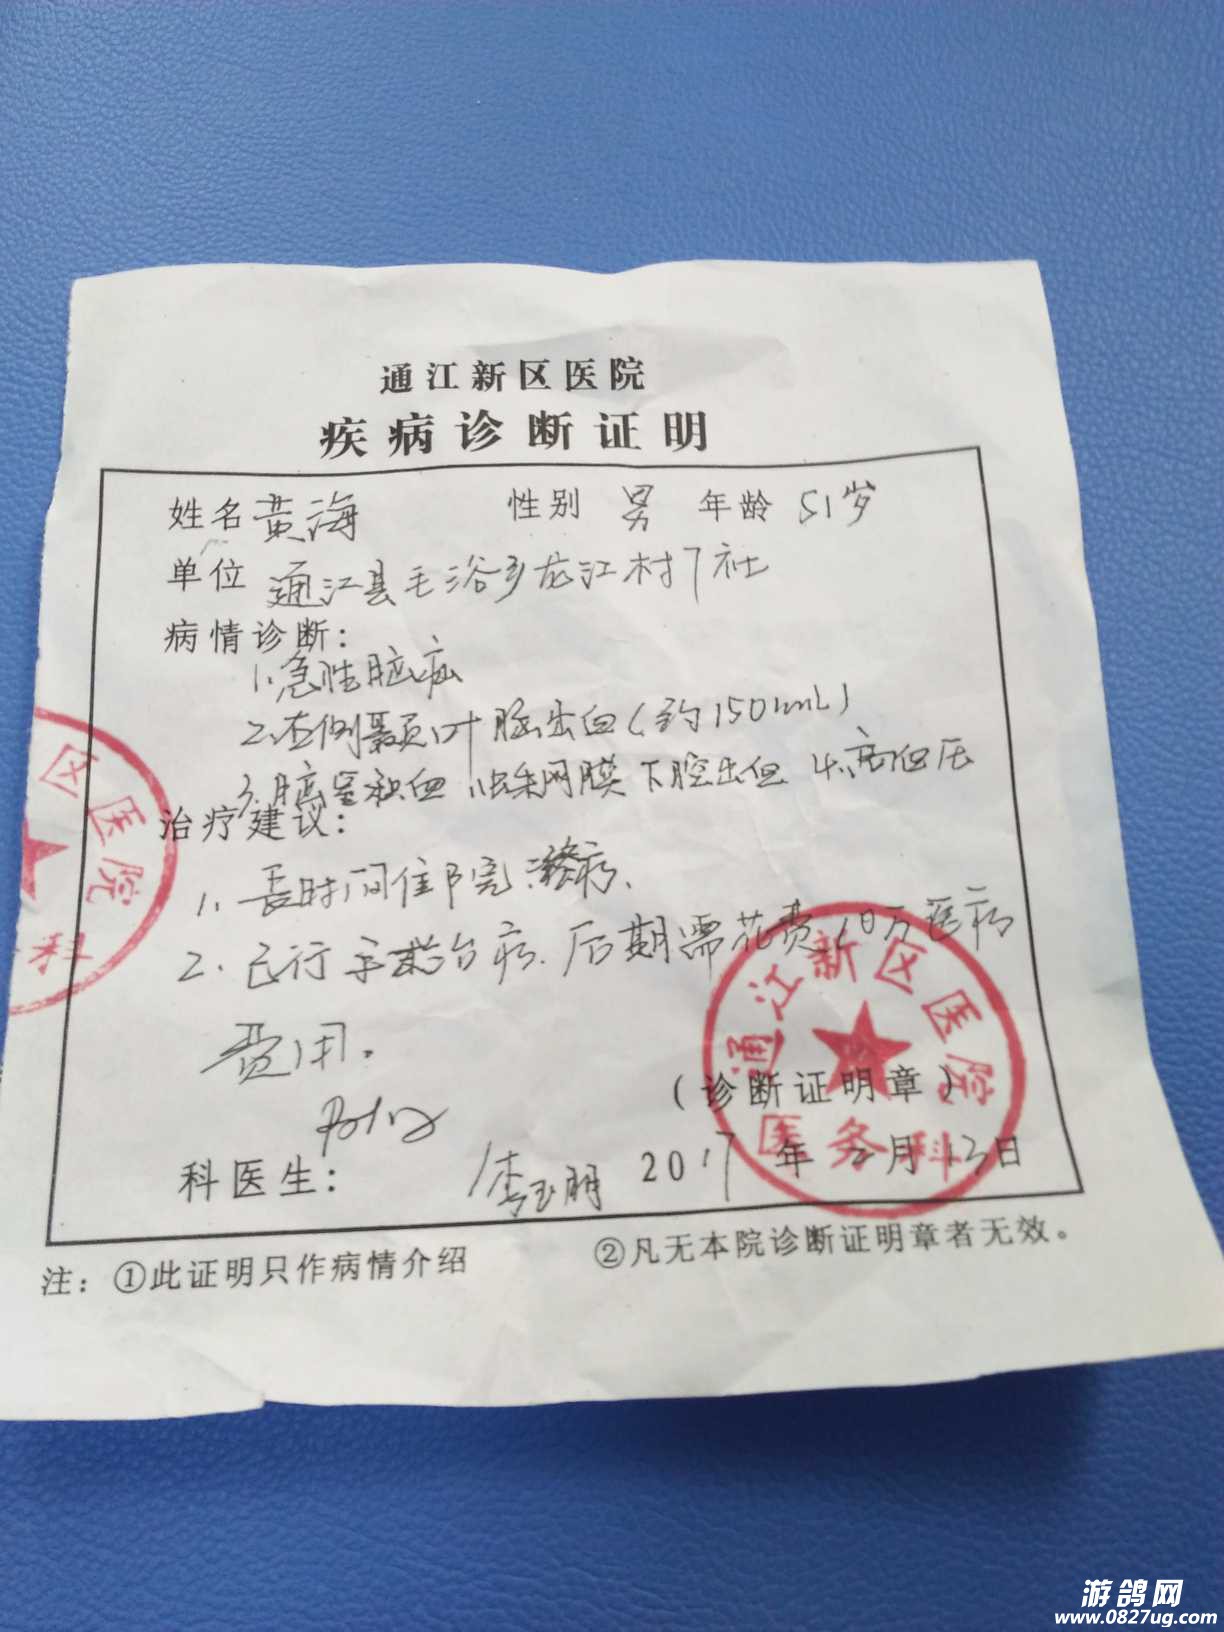 通江新区医院
疾病诊断证明
姓名 黄海 性别 男 年龄 51岁
单位 通江县毛浴乡龙江村7社
病情诊断：
1.急性脑疝
2.左侧颞叶脑出血(约150mL)
3.脑室积血 蛛网膜下腔出血 4.高血压
治疗建议：
1.长时间住院治疗.
2.已行手术治疗.后期需花费10万医疗
费用.
(诊断证明章)
科医生： 李玉明 2017年 月13日
注：①此证明只作病情介绍 ②凡无本院诊断证明章者无效。
区医院
科
通江新区医院
医务科
游鸽网
www.0827ug.com